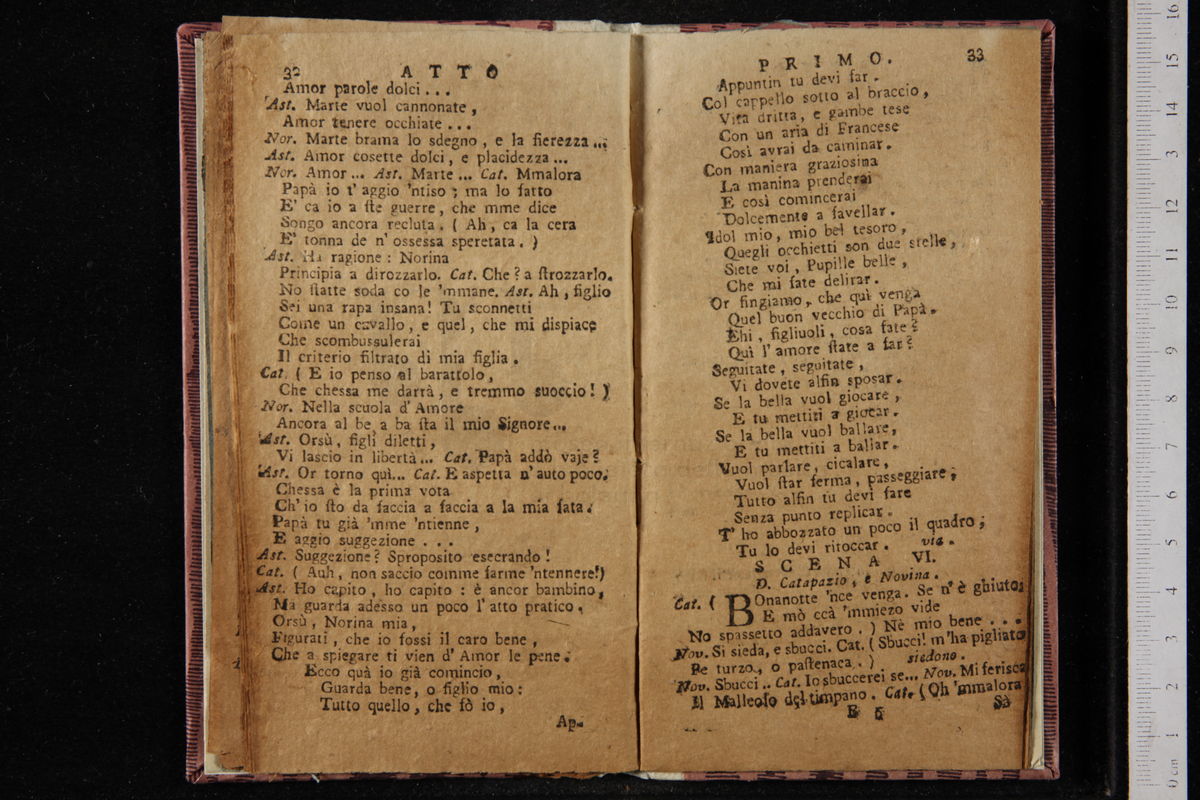 32 ATTO
Amor parole dolci...
Ast. Marte vuol cannonate,
Amor tenere occhiate...
Nor. Marte brama lo sdegno, e la fierezza...
Ast. Amor cosette dolci, e placidezza...
Nor. Amor... Ast. Marte... Cat. Mmalora
Papà io t' aggio 'ntiso; ma lo fatto
E' ca io a ste guerre, che mme dice
Songo ancora recluta. ( Ah, ca la cera
E' tonna de n' ossessa speretata. )
Ast. Ha ragione: Norina
Principia a dirozzarlo. Cat. Che? a strozzarlo.
No statte soda co le 'mmane. Ast. Ah, figlio
Sei una rapa insana! Tu sconnetti
Come un cavallo, e quel, che mi dispiace
Che scombussulerai
Il criterio filtrato di mia figlia.
Cat. ( E io penso al barattolo,
Che chessa me darrà, e tremmo suoccio! )
Nor. Nella scuola d' Amore
Ancora al be a ba sta il mio Signore...
Ast. Orsù, figli diletti,
Vi lascio in libertà... Cat. Papà addò vaje?
Ast. Or torno quì... Cat. E aspetta n' auto poco.
Chessa è la prima vota
Ch' io sto da faccia a faccia a la mia fata.
Papà tu già 'mme 'ntienne,
E aggio suggezione...
Ast. Suggezione? Sproposito esecrando!
Cat. ( Auh, non saccio comme farme 'ntennere!)
Ast. Ho capito, ho capito: è ancor bambino,
Ma guarda adesso un poco l' atto pratico,
Orsù, Norina mia,
Figurati, che io fossi il caro bene,
Che a spiegare ti vien d' Amor le pene.
Ecco quà io già comincio,
Guarda bene, o figlio mio:
Tutto quello, che fò io,
Ap-
PRIMO. 33
Appuntin tu devi far.
Col cappello sotto al braccio,
Vita dritta, e gambe tese
Con un aria di Francese
Così avrai da caminar.
Con maniera graziosina
La manina prenderai
E così comincerai
Dolcemente a favellar.
Idol mio, mio bel tesoro,
Quegli occhietti son due stelle,
Siete voi, Pupille belle,
Che mi fate delirar.
Or fingiamo, che quì venga
Quel buon vecchio di Papà.
Ehi, figliuoli, cosa fate?
Quì l' amore state a far?
Seguitate, seguitate,
Vi dovete alfin sposar.
Se la bella vuol giocare,
E tu mettiti a giocar.
Se la bella vuol ballare,
E tu mettiti a ballar.
Vuol parlare, cicalare,
Vuol star ferma, passeggiare,
Tutto alfin tu devi fare
Senza punto replicar.
T' ho abbozzato un poco il quadro;
Tu lo devi ritoccar. via.
SCENA VI.
D. Catapazio, e Novina.
Cat. ( BOnanotte 'nce venga. Se n' è ghiuto:
E mò ccà 'mmiezo vide
No spassetto addavero. ) Nè mio bene...
Nov. Si sieda, e sbucci. Cat. ( Sbucci! m'ha pigliato
Pe turzo, o pastenaca. ) siedono.
Nov. Sbucci.. Cat. Io sbuccerei se... Nov. Mi ferisca
Il Malleolo del timpano. Cat. ( Oh 'mmalora
E 5 Sà